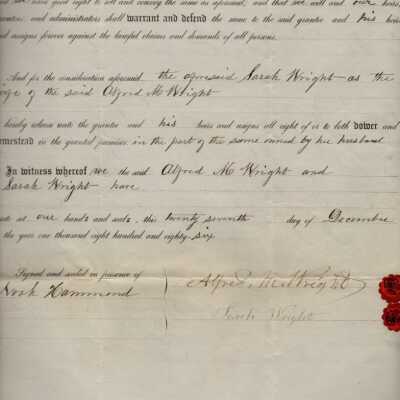 have good right to sell and convey the same as aforesaid; and that we will and our heirs,
executors, and administrators shall warrant and defend the same to the said grantee and his heirs
and assigns forever against the lawful claims and demands of all persons.
And for the consideration aforesaid the aforesaid Sarah Wright as the
of the said Alfred M Wright
hereby release unto the grantee and his heirs and assigns all right of or to both dower and
homestead in the granted premises in the part of the same owned by her husband
In witness whereof we the said Alfred M Wright and
Sarah Wright have
set our hands and seals, this twenty seventh day of Decembre
the year one thousand eight hundred and eighty-six
Signed and sealed in presence of
Hammond
Alfred M Wright
Sarah Wright